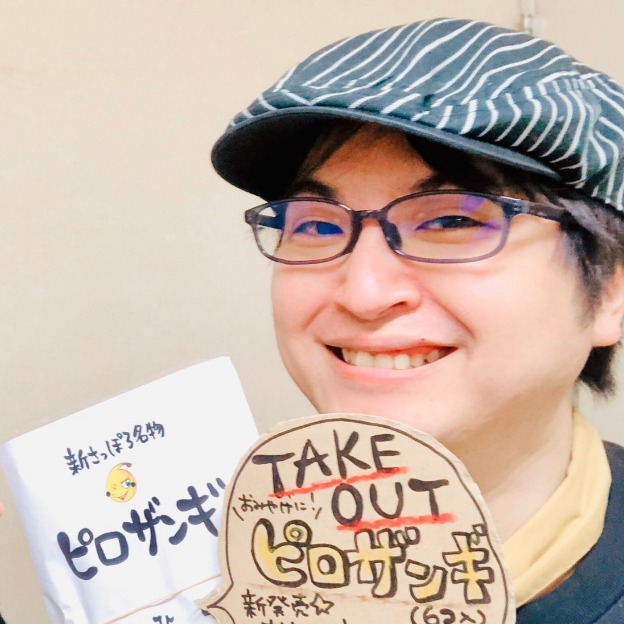 新さっぽろ名物
ピロザンギ
TAKE
OUT
おみやげに!
ピロザンギ
新発売☆
(6コ入)